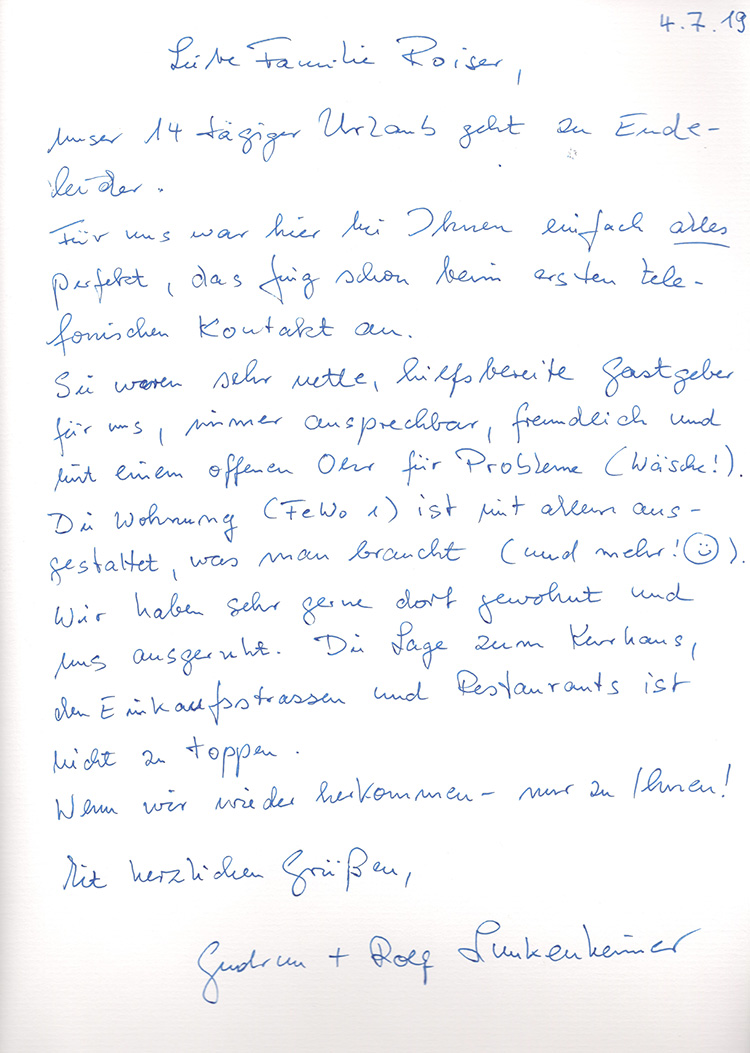 4.7.19
Liebe Familie Roiser,
unser 14 tägiger Urlaub geht zu Ende -
leider.
Für uns war hier bei Ihnen einfach alles
perfekt, das fing schon beim ersten tele-
fonischen Kontakt an.
Sie waren sehr nette, hilfsbereite Gastgeber
für uns, immer ansprechbar, freundlich und
mit einem offenen Ohr für Probleme (Wäsche!).
Die Wohnung (FeWo 1) ist mit allem aus-
gestattet, was man braucht (und mehr! ☺).
Wir haben sehr gerne dort gewohnt und
uns ausgeruht. Die Lage zum Kurhaus,
den Einkaufsstrassen und Restaurants ist
nicht zu toppen.
Wenn wir wieder herkommen - nur zu Ihnen!
Mit herzlichen Grüßen,
Gudrun + Rolf Lunkenheimer